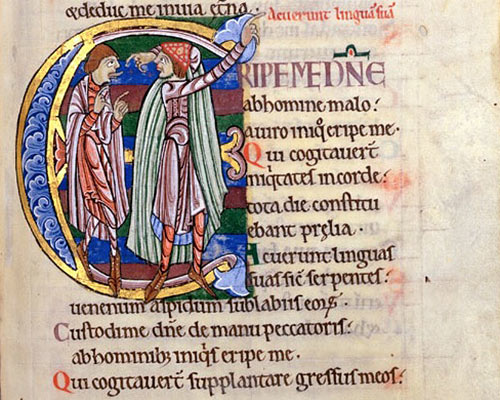 & deduc me in uia etna· Acuerunt linguas suas
ERIPE ME DNE
ab homine malo:
a uiro iniq̇ eripe me·
Qui cogitauert̄
iniq̇tates in corde:
tota die constitu
ebant pręlia·
Acuerunt linguas
suas sic̄ serpentes:
uenenum aspidum sub labiis eoꝝ·
Custodi me dn̄e de manu peccatoris:
ab hominib; iniq̇s eripe me·
Qui cogitauert̄ supplantare gressus meos: